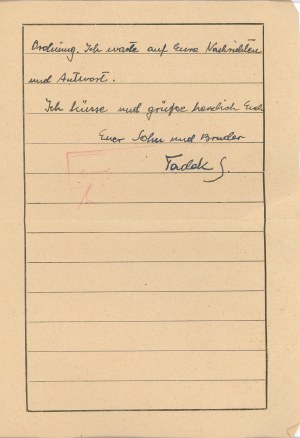 Ordnung. Ich warte auf Eure Nachrichten
und Antwort.
Ich küsse und grüße herzlich Euch
Euer Sohn und Bruder
Tadek S.